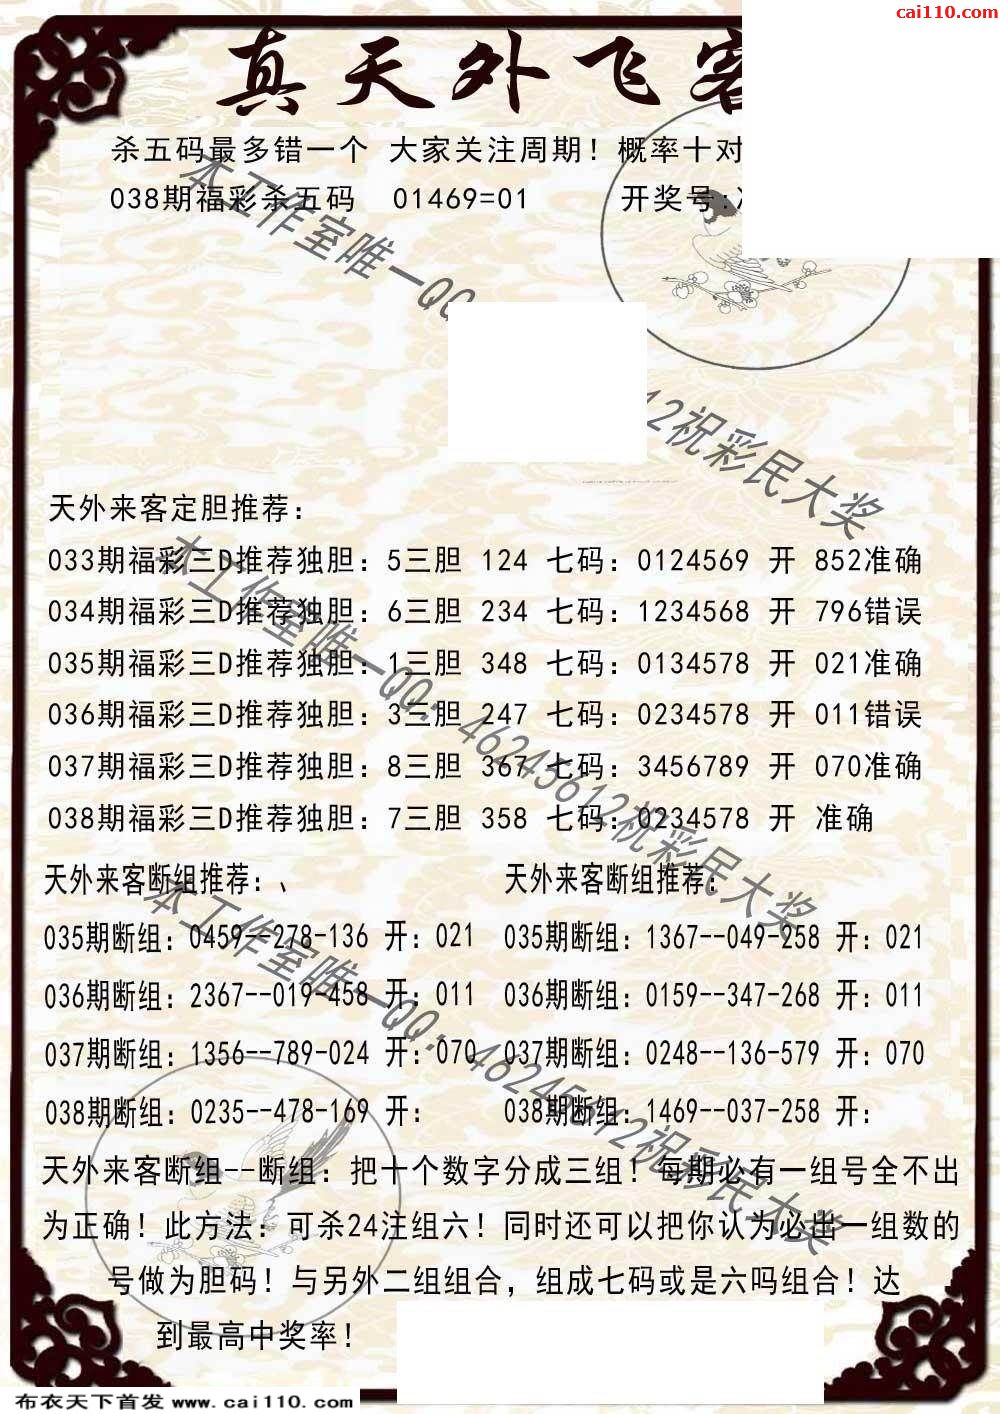 cai110.com
真天外飞客
杀五码最多错一个 大家关注周期！概率十对
038期福彩杀五码 01469=01 开奖号:
本工作室唯一QQ
12祝彩民大奖
天外来客定胆推荐：
033期福彩三D推荐独胆：5三胆 124 七码：0124569 开 852准确
034期福彩三D推荐独胆：6三胆 234 七码：1234568 开 796错误
035期福彩三D推荐独胆：1三胆 348 七码：0134578 开 021准确
036期福彩三D推荐独胆：3三胆 247 七码：0234578 开 011错误
037期福彩三D推荐独胆：8三胆 367 七码：3456789 开 070准确
038期福彩三D推荐独胆：7三胆 358 七码：0234578 开 准确
本工作室唯一QQ：46245612祝彩民大奖
天外来客断组推荐：、 天外来客断组推荐：
035期断组：0459--278-136 开：021 035期断组：1367--049-258 开：021
036期断组：2367--019-458 开：011 036期断组：0159--347-268 开：011
037期断组：1356--789-024 开：070 037期断组：0248--136-579 开：070
038期断组：0235--478-169 开： 038期断组：1469--037-258 开：
本工作室唯一QQ：46245612祝彩民大奖
天外来客断组--断组：把十个数字分成三组！每期必有一组号全不出
为正确！此方法：可杀24注组六！同时还可以把你认为必出一组数的
号做为胆码！与另外二组组合，组成七码或是六吗组合！达
到最高中奖率！
布衣天下首发 www.cai110.com